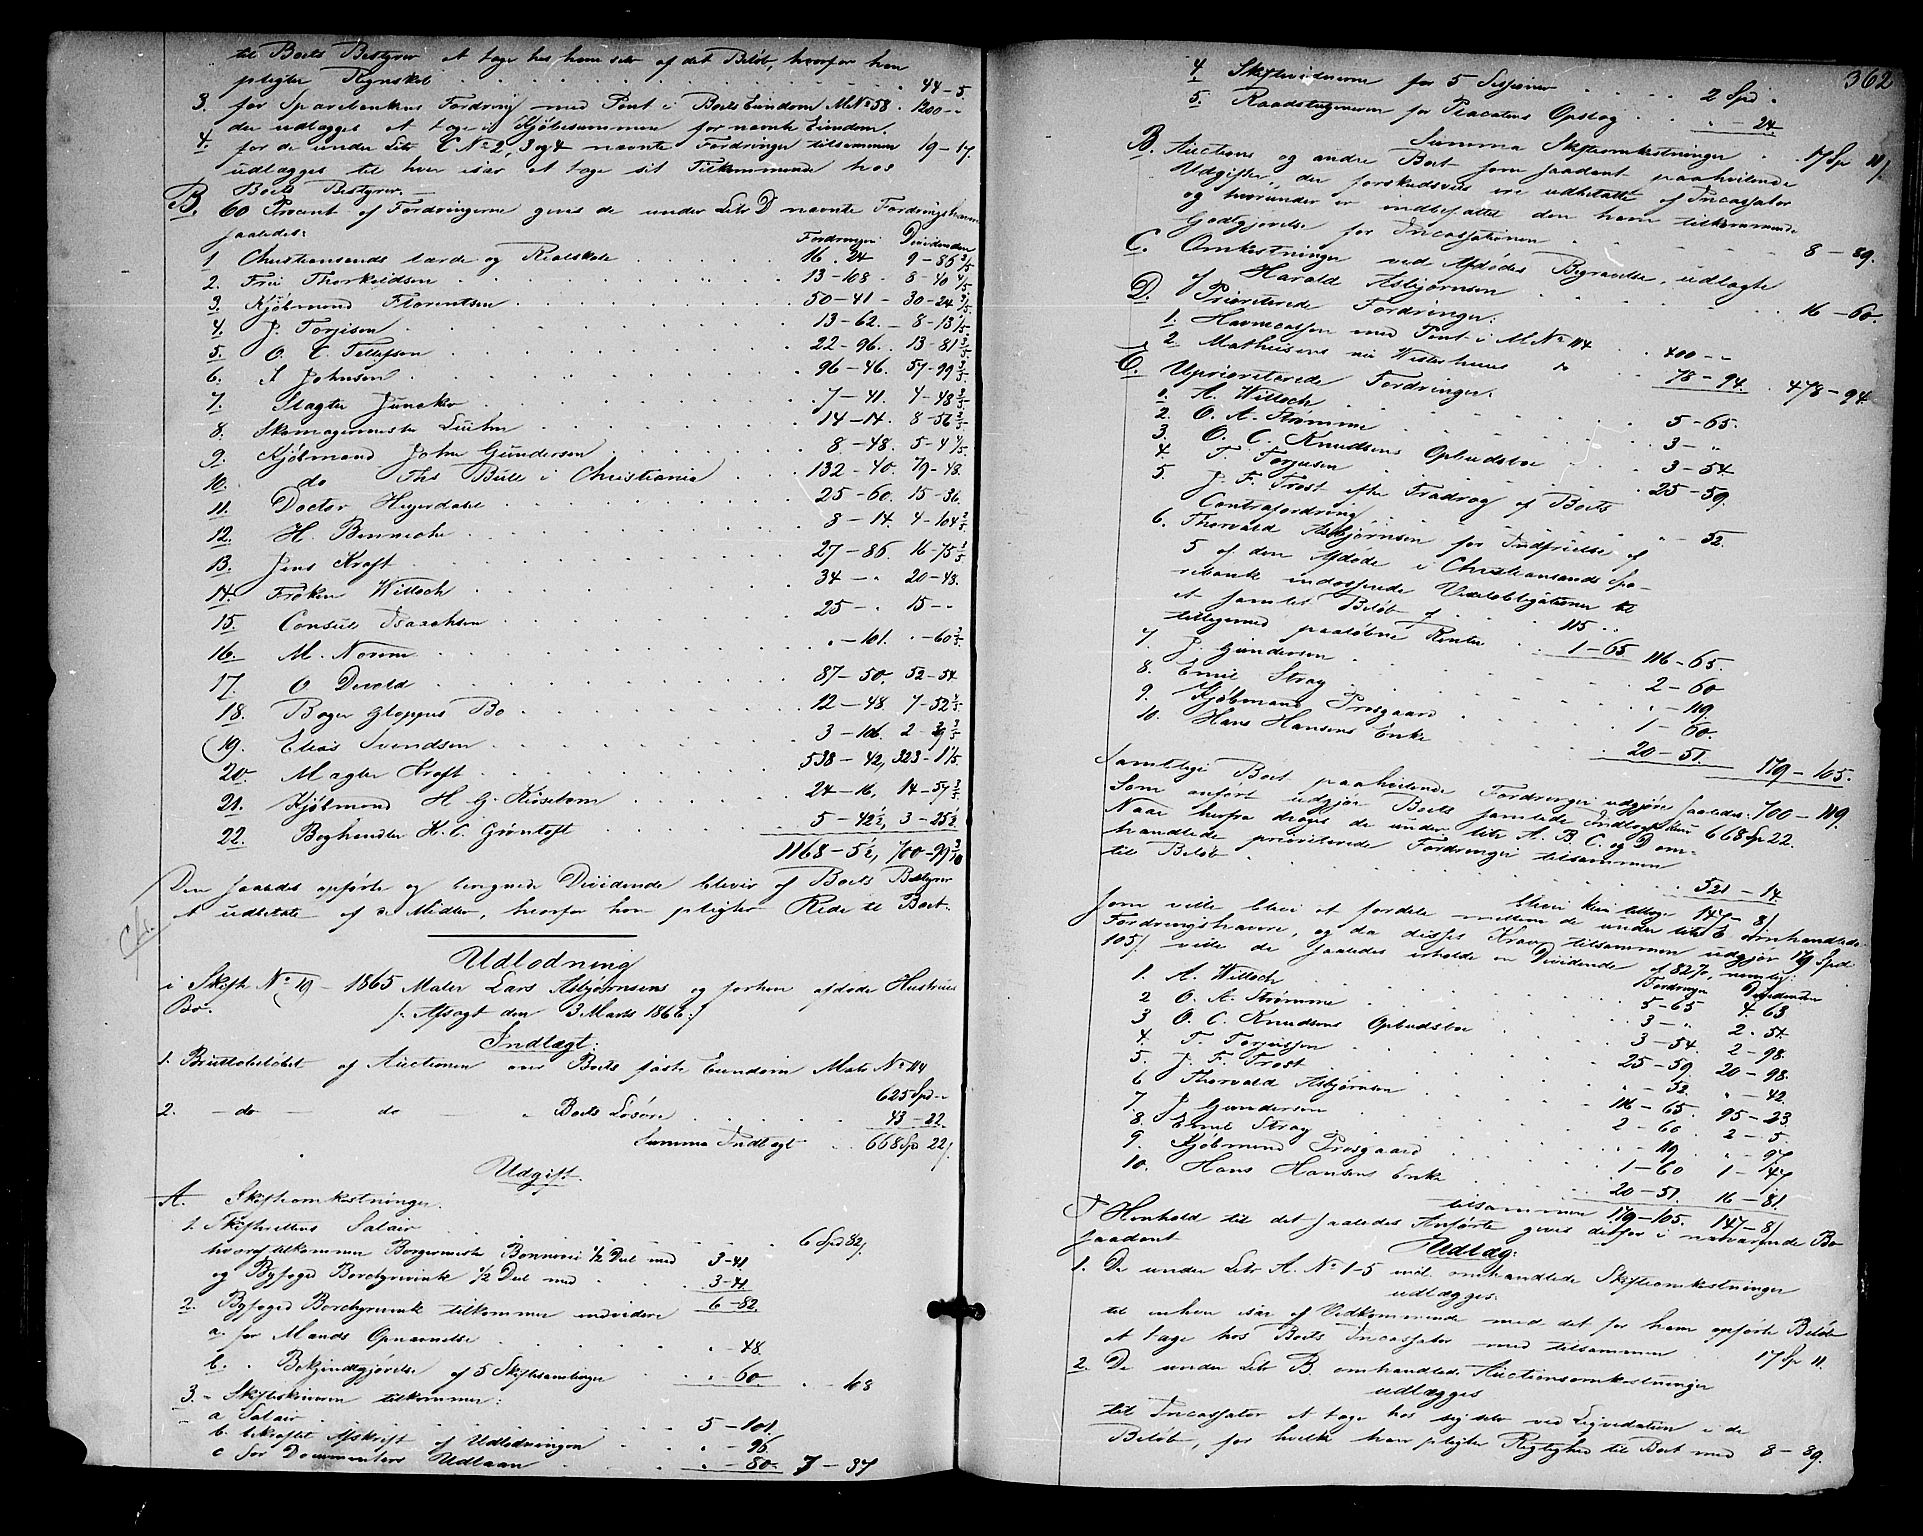 til Boets Bestyrer at tage hos ham selv af det Beløb, hvorfor han
pligter Regnskab . . . 44-5.
3. for Sparebankens Fordring med Pant i Boets Eiendom M.No 58 . 1200 - -
der udlægges at tage i Kjøbesummen for nævnte Eiendom.
4. for de under Litr C No 2, 3 og 4 nævnte Fordringer tilsammen 19-17.
udlægges til hver især at tage sit Tilkommende hos
Boets Bestyrer. —
B. 60 Procent af Fordringerne gives de under Litr D nævnte Fordringshavere
saaledes:
Fordringer Dividenden
1 Christiansands lærde og Realskole . . . 16 . 24 9-86 2/5
2. Frü Thorkildsen . . . 13-108 . 8-40 4/5
3. Kjøbmand Florentsen . . . 50-41 - 30-24 3/5
4. J. Torjisen . . . 13-62. - 8-13 1/5
5. O. C. Tellefsen . . . 22-96. . 13-81 3/5
6. S Johnsen . . . 96-46. 57-99 3/5
7. Slagter Juncker . . . 7-41. 4-48 3/5
8. Skomagermester Lühr . . . 14-14. 8-56 2/5
9. Kjøbmand John Gundersen . . . 8-48. 5-4 4/5
10. do Ths Büll i Christiania . . . 132-40. 79-48.
11. Doctor Heyerdahl . . . 25-60. 15-36.
12. H. Benneche . . . 8-14. 4-104 2/5
13. Jens Kraft . . . 27-86 16-75 3/5
14. Frøken Willoch . . . 34 - " 20-48.
15. Consul Isaachsen . . . 25 - " 15 - -
16. M. Norem . . . " -101. " -60 3/5
17. O. Devold . . . 87-50. 52-54
18. Bager Gloppes Bo . . . 12-48 7-52 4/5
19. Elias Svendsen . . . 3-106 2-39 3/5
20. Magler Kraft . . . 538-42, 323-1 1/5
21. Kjøbmand H G. Küsebom . . . 24-16, 14-57 3/5
22. Boghandler K. C. Grøntoft . . . 5-42½, 3-25½
1168-5½, 700-99 3/10
Den saaledes opførte og beregnede Dividende bliver af Boets Bestyrer
at udbetale af de Midler, hvorfor han pligter Rede til Boet.
Udlodning
i Skifte No 19 - 1865 Maler Lars Asbjørnsens og forhen afdøde Hustrues
Bo. /: Afsagt den 3 Marts 1866:/
Indtægt:
1. Bruttobeløbet af Auctionen over Boets faste Eiendom Matr No 114
625 Spd -
2. - do - do - " Boets Løsøre . . . 43-22.
Summa Indtægt . . 668 Sp 22/
Udgift.
A. Skifteomkostninger.
1. Skifterettens Salair . . . 6 Spd 82/.
hvoraf tilkommer Borgermester Bonnevie ½ Deel med 3-41
og Byfoged Borchgrevink ½ Deel med . . . 3-41.
6-82
2. Byfoged Borchgrevink tilkommer endvidere
a. for Mands Opnævnelse . . . " -48.
b. " Bekjendtgjørelse af 5 Skiftesamlinger . . " 60 . . -108
3. - Skifteskriveren tilkommer:
a Salair . . . 5-101.
b. bekræftet Afskrift af Udlodningen . . . " -96.
c for Documenters Udlaan . . . " -80. 7-37
362
4 Skiftevidnerne for 5 Sessioner . . . 2 Spd "
5. Raadstuetjeneren for Placaters Opslag . . " -24
Summa Skifteomkostninger . . 17 Sp 11/.
B. Auctions og andre Boet som saadant paahvilende
Udgifter, der forskudsvis ere udbetalte af Incassator
og hvorunder er indbefattet den ham tilkommende
Godtgjørelse for Incassationen . . . 8-89.
C. Omkostninger ved Afdødes Begravelse, udlagte
af Harald Asbjørnsen . . . 16-60.
D. Prioriterede Fordringer:
1. Havnecassen med Pant i M No 114 . 400 - -
2. Mathiesens nu Westerhuus do . . 78-94. . 478-94
E. Uprioriterede Fordringer.
1. A. Willoch . . . 5-65.
2. O. A. Strømme . . . 3 - "
3. O. C. Knudsens Opbudsbo . . . 3-54
4. T. Torjusen . . . 25-59.
5. J. F. Trost efter Fradrag af Boets
Contrafordring . . . " -52.
6. Thorvald Asbjørnsen for Indfrielse af
5 af den Afdøde i Christiansands Spa-
rebank indestaaende Vexelobligationer til
et samlet Beløb af . . 115 . .
tilligemed paaløbne Renter . . 1-65 116-65.
7. J. Gundersen . . . 2-60
8. Emil Stray . . . " -119.
9. Kjøbmand Prosgaard . . . 1-60.
10. Hans Hansens Enke . . . 20-51. 179-105.
Samtlige Boet paahvilende Fordringer udgjøre saaledes: 700-119.
Som anført udgjør Boets samlede Indtægt kun 668 Sp 22.
Naar herfra drages de under Litr A. B. C. og D om-
handlede prioriterede Fordringer tilsammen
til Beløb . . . 521-14.
bliver kun tilbage 147-8/
som ville blive at fordele mellem de under Litr E omhandlede
Fordringshavere, og da disses Krav tilsammen udgjør 179 Spd
105/. ville de saaledes erholde en Dividende af 82 %, nemlig:
Fordringer Dividenden
1. A. Willoch . . . 5-65 4. 63
2 O. A. Strømme . . . 3 - " 2. 54.
3 O. C. Knudsens Opbudsbo . . . 3-54. 2-98.
4. T. Torjussen . . . 25-59. 20-98.
5. J. F. Trost . . . " -52. " -42.
6 Thorvald Asbjørnsen . . . 116-65 95-23.
7. J Gundersen . . . 2-60. 2-5.
8. Emil Stray . . . " -119. " -97
9. Kjøbmand Prosgaard . . . 1-60 1-47
10. Hans Hansens Enke . . . 20-51. 16-81.
tilsammen 179-105. 147-8/
I Henhold til det saaledes Anførte gives derfor i nærværende Bo
saadant Udlæg:
1. De under Litr A. No 1-5 incl. omhandlede Skifteomkostninger
udlægges
til enhver især af Vedkommende med det for ham opførte Beløb
at tage hos Boets Incassator med tilsammen . 17 Sp 11.
2. De under Litr B. omhandlede Auctionsomkostninger
udlægges
til Incassator at tage hos sig selv ved Liqvidation i de
Beløb, for hvilke han pligter Rigtighed til Boet med 8-89.